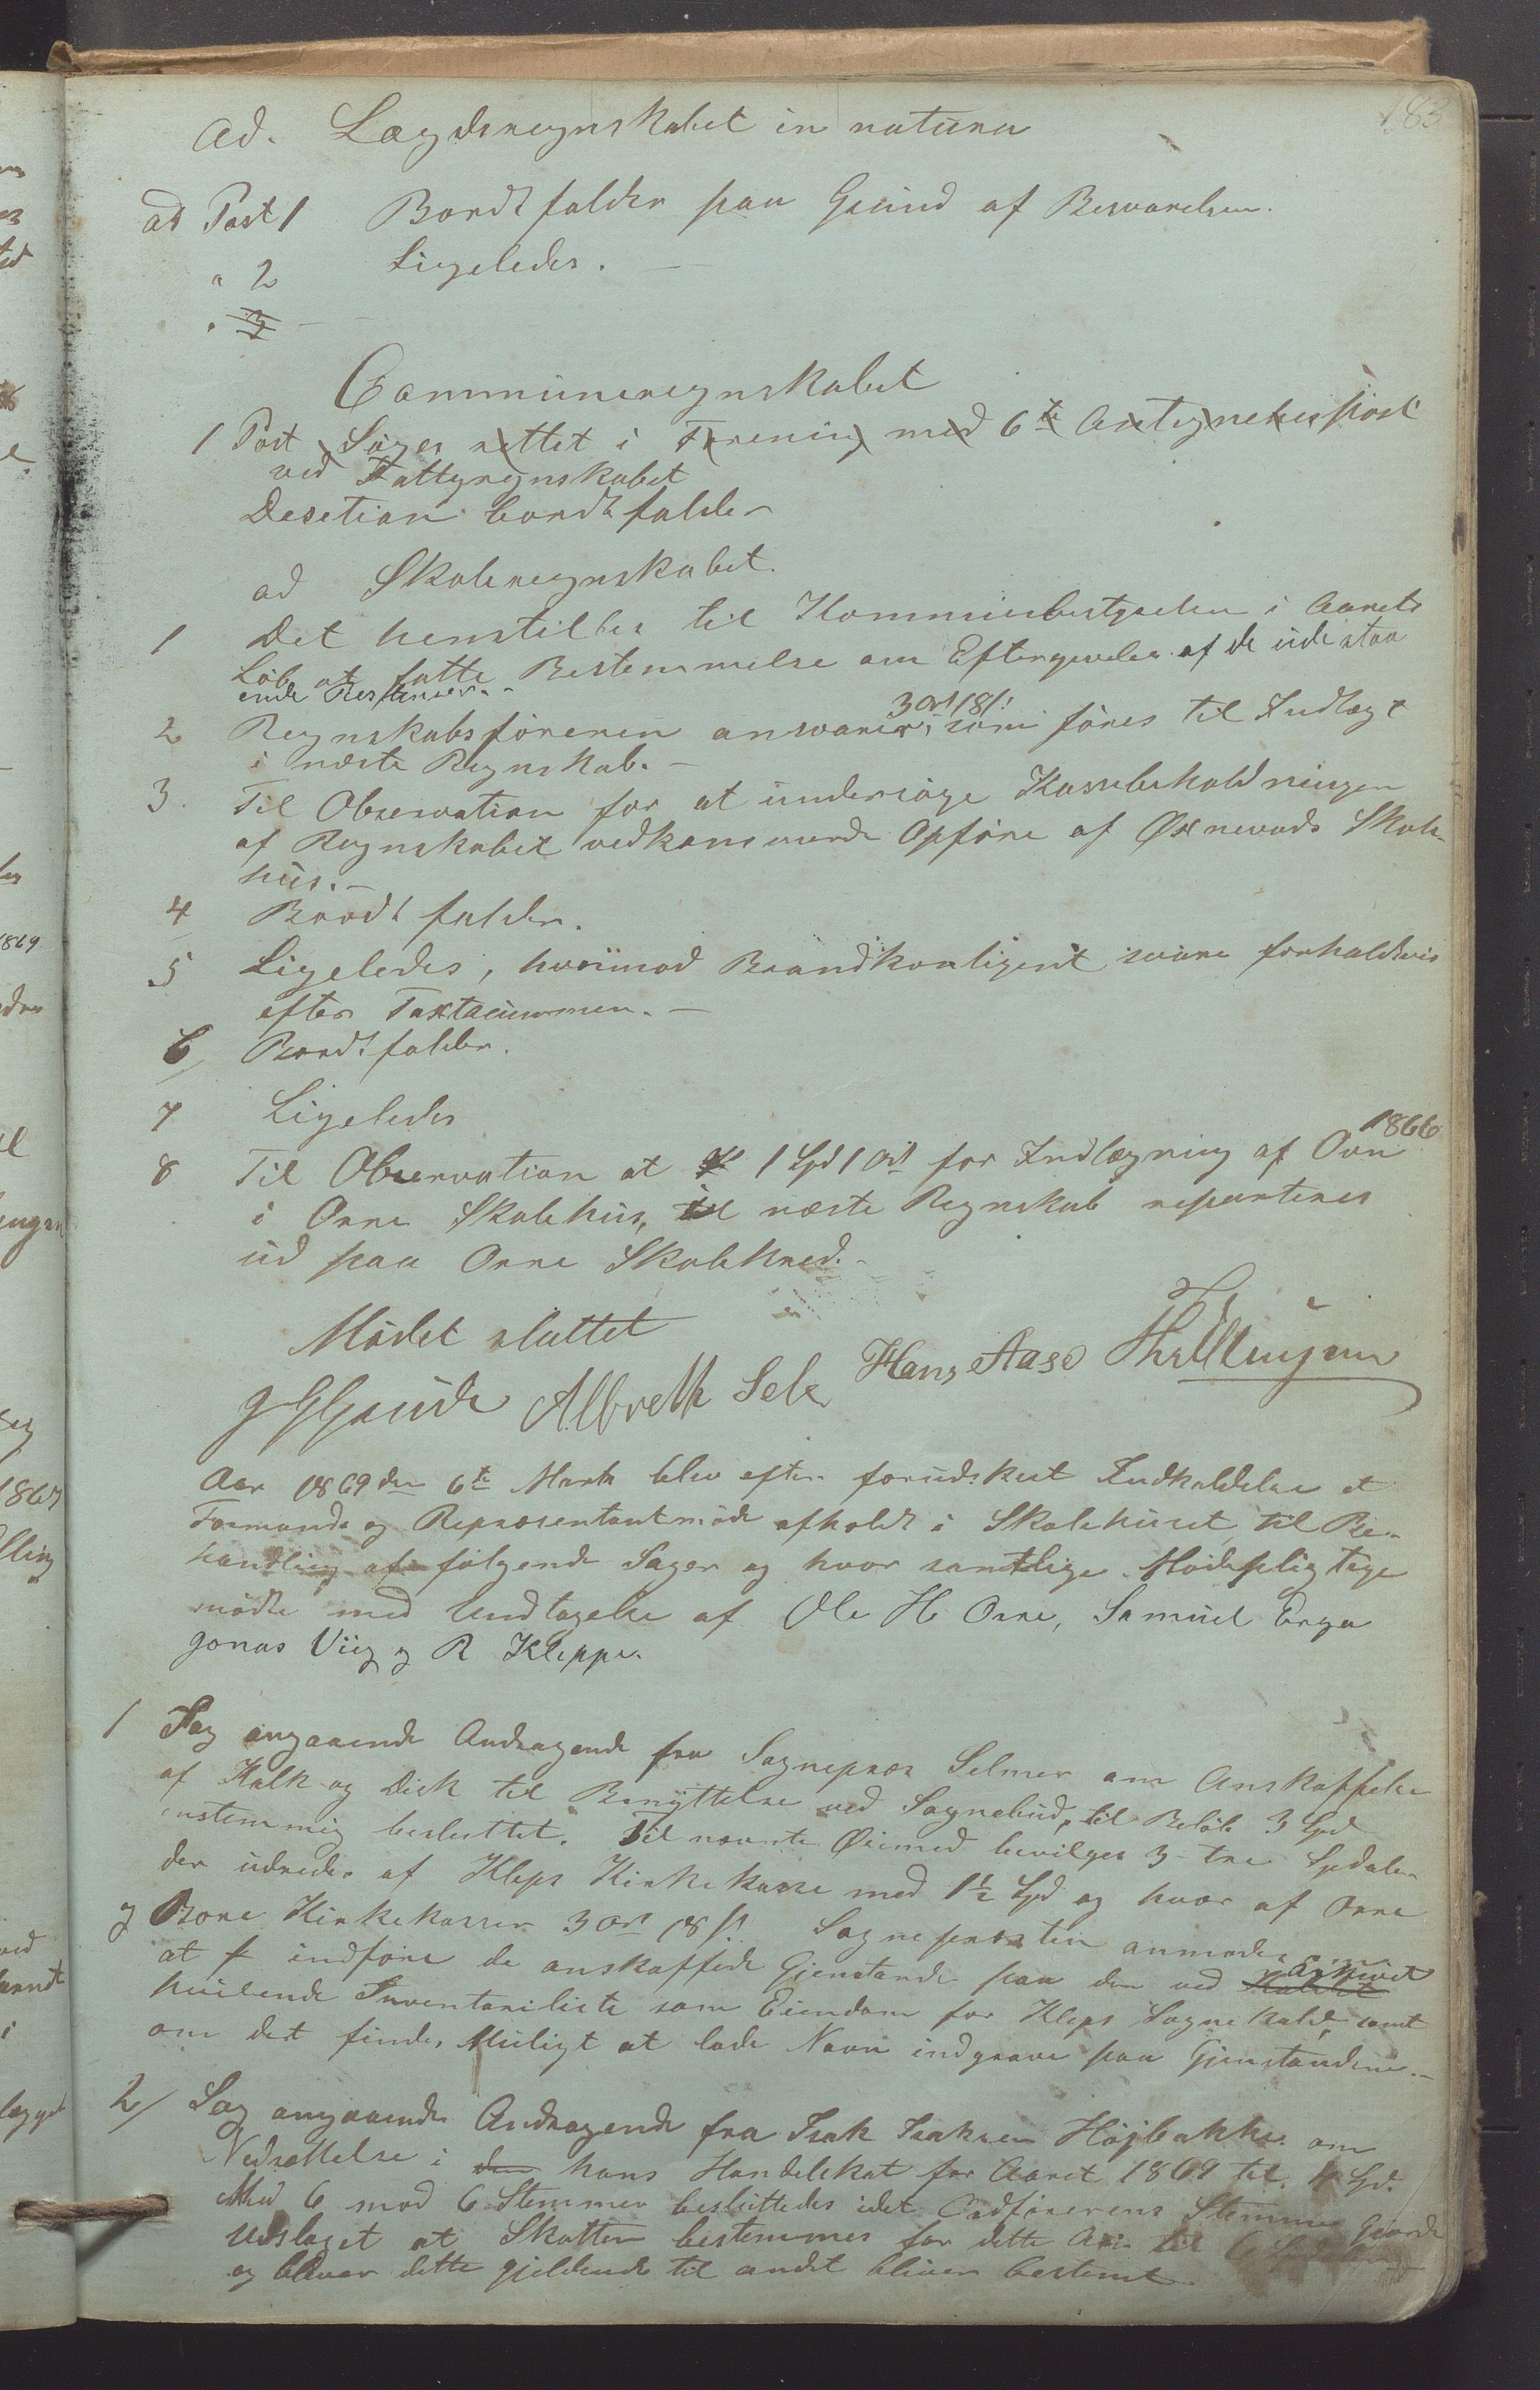 183
Ad. Lægdsregnskabet in natura
ad Post 1 Bordtfalder paa Grund af Besvarelsen.
" 2 Ligeledes. —
" 3 — —
Communeregnskabet
1 Post Søges rettet i Forening med 6te Antegnelsespost
ved Fattigregnskabet
Desetion bordtfalder
ad Skoleregnskabet.
1 Det henstilles til Kommunebestyrelsen i Aarets
Løb at fatte Bestemmelse om Eftergivelse af de udestaa
ende Restancer. -
2 Regnskabsføreren ansvarer 3 Ort 18 s. som føres til Indtægt
i næste Regnskab. —
3. Til Observation for at undersøge Kassebeholdningen
af Regnskabet vedkommende Opføre af Øxnevads Skole-
hus. —
4 Bordt falder.
5 Ligeledes, hvorimod Brandkontigent svare forholdsvis
efter Taxtsummen. —
6/ Bordtfalder.
7 Ligeledes
8 Til Observation at 1 Spd 1 Ort for Indlægning af Ovn 1866
i Orre Skolehus, til næste Regnskab reparteres
ud paa Orre Skolekred. -
Mødet sluttet
G G Grude Albrett Sele Hans Aase
Aar 1869 den 6te Marts blev efter forudskeet Indkaldelse et
Formands og Repræsentantmøde afholdt i Skolehuset til Be-
handling af følgende Sager og hvor samtlige Mødepligtige
mødte med Undtagelse af Ole H Orre, Samuel Erga
Jonas Viig og R Kleppe.
1 Sag angaaende Andragende fra Sognepræs Selmer om Anskaffelse
af Kalk og Disk til Benyttelse ved Sognebud, til Beløb 3 Spd
enstemmig besluttet. Til nævnte Øiemed bevilges 3 - tre Spdaler
der udredes af Kleps Kirkekasse med 1½ Spd og hver af Orre
og Bore Kirkekasser 3 Ort 18 s. Sognepræsten anmodes om
at indføre de anskaffede Gjenstande paa den ved Kaldet Arkivet
hvilende Inventarieliste som Eiendom for Kleps Sognekald, samt
om det findes Muligt at lade Navn indgrave paa Gjenstandene. —
2/ Sag angaaende Andragende fra Isak Isaksen Højbakke om
Nedsættelse i den hans Handelskat for Aaret 1869 til 4 Spd.
Med 6 mod 6 Stemmer besluttedes idet Ordførerens Stemme Gjorde
Udslaget at Skatten bestemmes for dette Aar til 6 Spdaler
og bliver dette gjeldende til andet bliver bestemt.